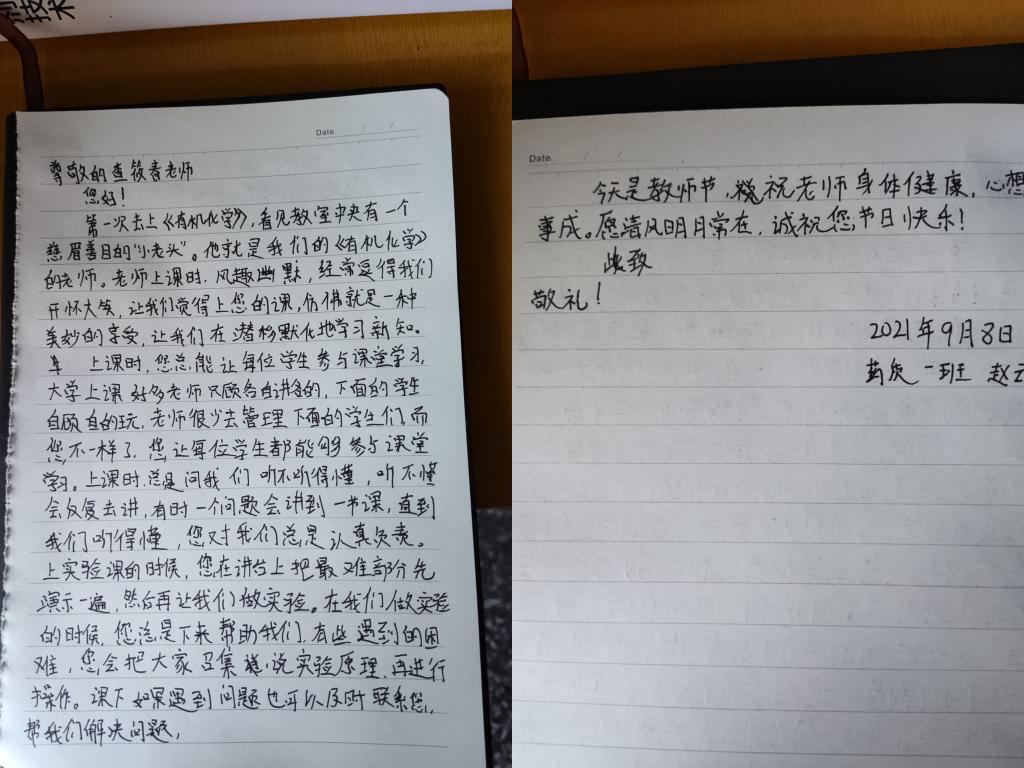 技术
Date.
尊敬的查筱青老师
您好！
第一次去上《有机化学》，看见教室中央有一个
慈眉善目的“小老头”。他就是我们的《有机化学》
的老师。老师上课时，风趣幽默，经常逗得我们
开怀大笑，让我们觉得上您的课，仿佛就是一种
美妙的享受，让我们在潜移默化地学习新知。
上课时，您总能让每位学生参与课堂学习，
大学上课好多老师只顾各自讲各的，下面的学生
自顾自的玩，老师很少去管理下面的学生们，而
您不一样了，您让每位学生都能够参与课堂
学习。上课时，总是问我们听不听得懂，听不懂
会反复去讲，有时一个问题会讲到一节课，直到
我们听得懂，您对我们总是认真负责。
上实验课的时候，您在讲台上把最难部分先
演示一遍，然后再让我们做实验。在我们做实验
的时候，您总是下来帮助我们，有些遇到的困
难，您会把大家召集，说实验原理，再进行
操作。课下如果遇到问题也可以及时联系您，
帮我们解决问题，
Date.
今天是教师节，祝老师身体健康，心想
事成。愿清风明月常在，诚祝您节日快乐！
此致
敬礼！
2021年9月8日
药质一班 赵云